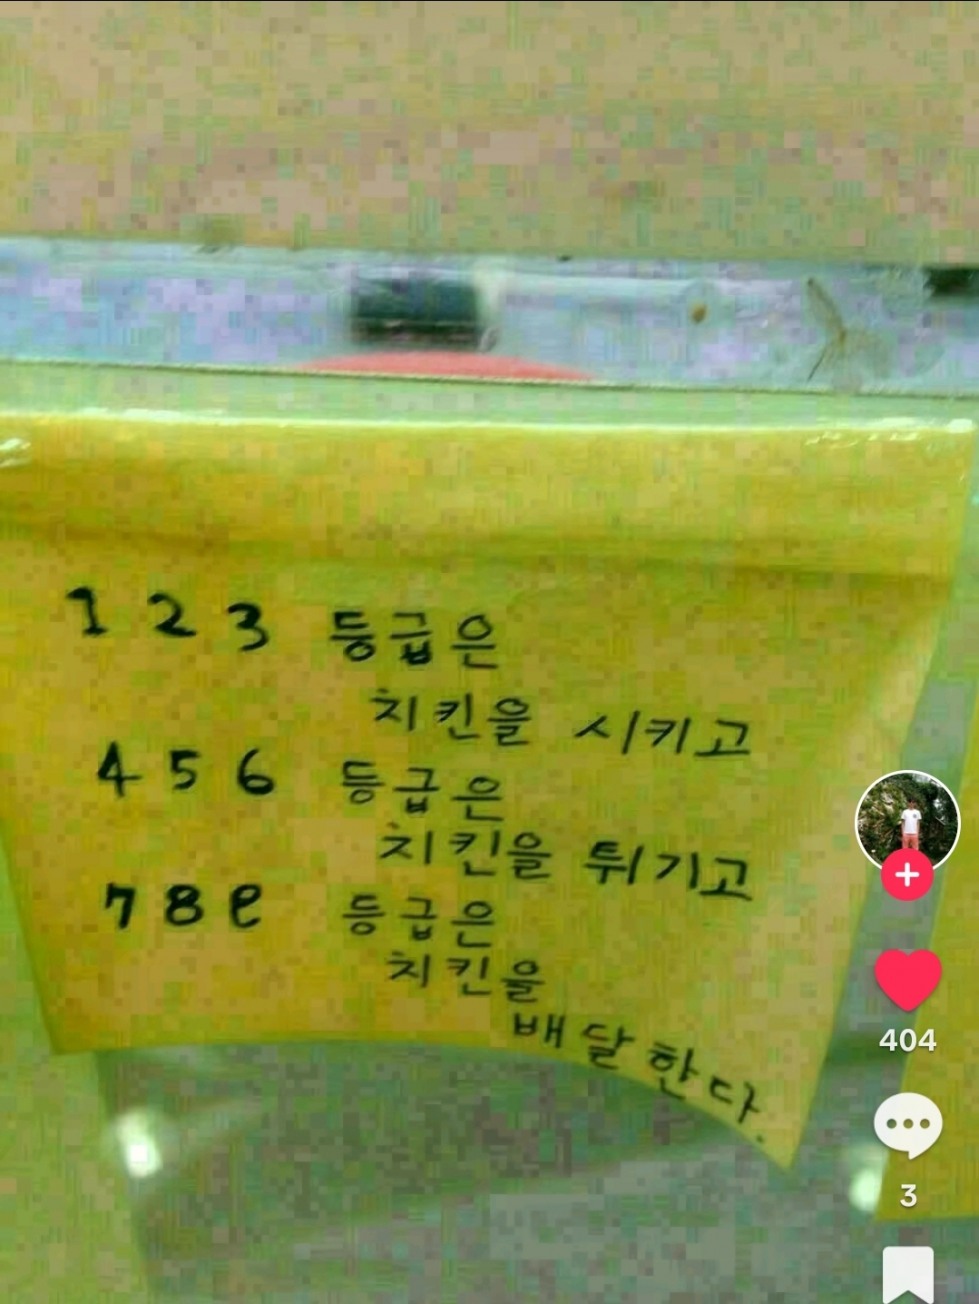 1 2 3 등급은
치킨을 시키고
4 5 6 등급은
치킨을 튀기고
7 8 e 등급은
치킨을
배달한다.
404
3